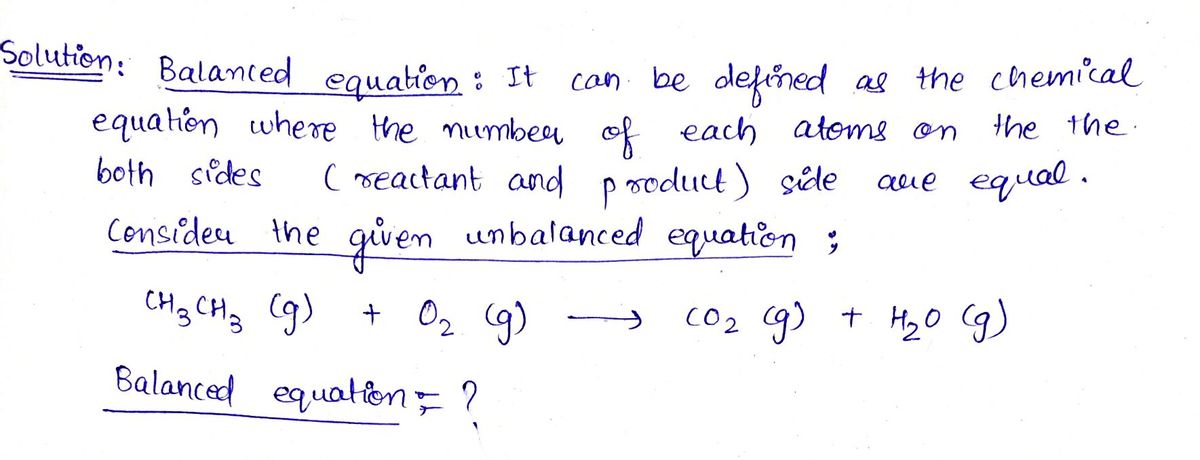 Solution: Balanced equation : It can be defined as the chemical
equation where the number of each atoms on the the
both sides (reactant and product) side are equal.
Consider the given unbalanced equation ;
CH₃CH₃ (g) + O₂ (g) → CO₂ (g) + H₂O (g)
Balanced equation = ?